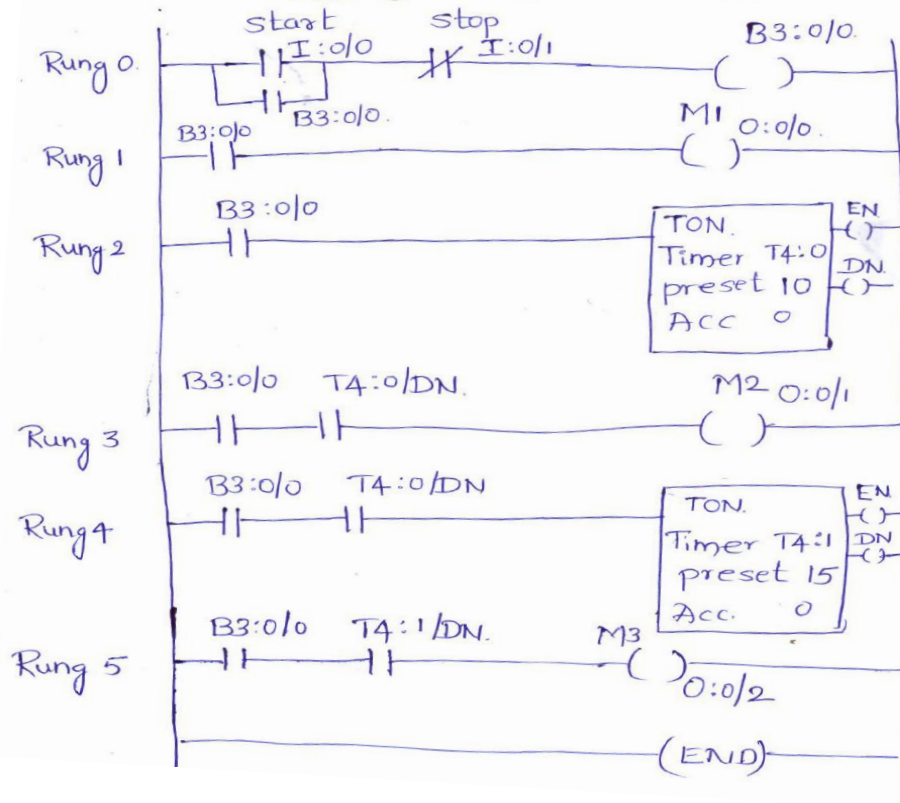 Start Stop
Rung 0. I:0/0 I:0/1 B3:0/0.
B3:0/0.
Rung 1 B3:0/0 M1 O:0/0.
Rung 2 B3:0/0 TON. EN
Timer T4:0 DN.
preset 10
Acc 0
Rung 3 B3:0/0 T4:0/DN. M2 O:0/1
Rung 4 B3:0/0 T4:0/DN TON. EN
Timer T4:1 DN
preset 15
Acc. 0
Rung 5 B3:0/0 T4:1/DN. M3
O:0/2
(END)